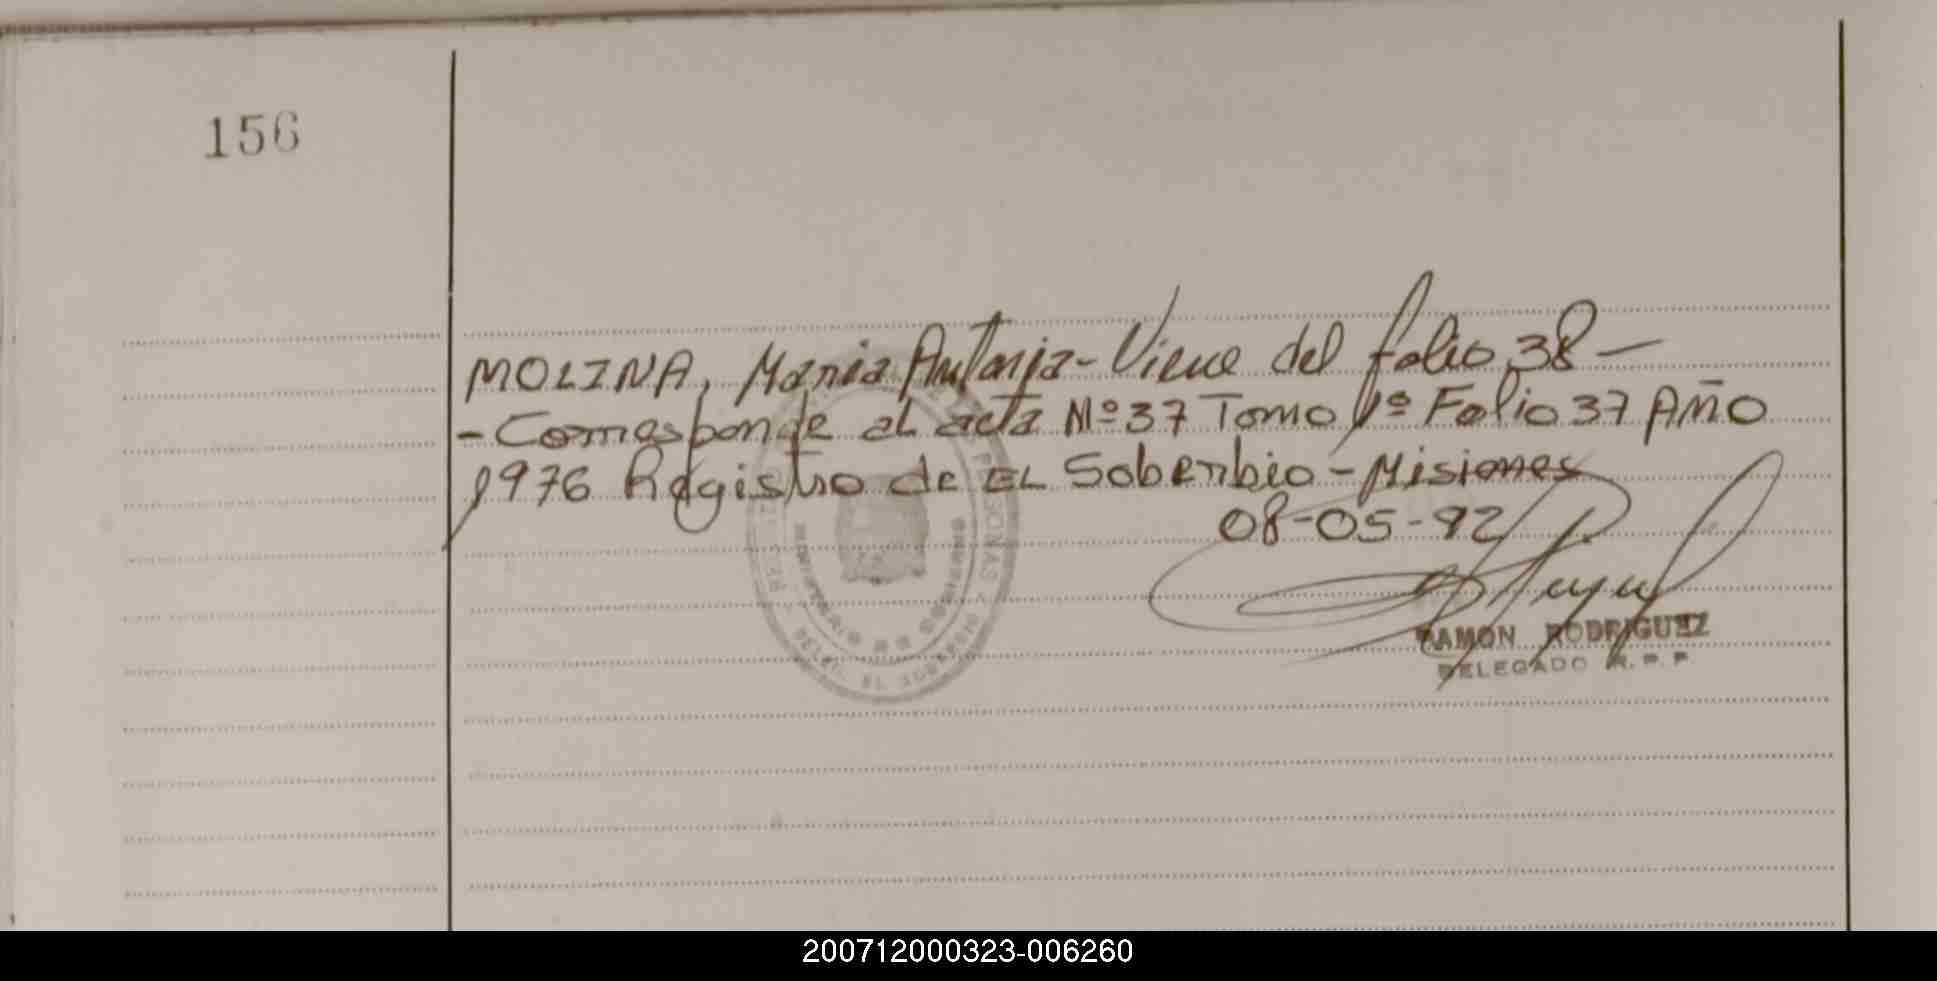 156
MOLINA, Maria Antonia - Viene del folio 38 -
- Corresponde al acta Nº 37 Tomo 1º Folio 37 AÑO
1976 Registro de EL Soberbio - Misiones
08-05-92
RAMON RODRIGUEZ
DELEGADO R. P. P.
PERSONAS
MINISTERIO DE GOBIERNO
DELEG. EL SOBERBIO
200712000323-006260